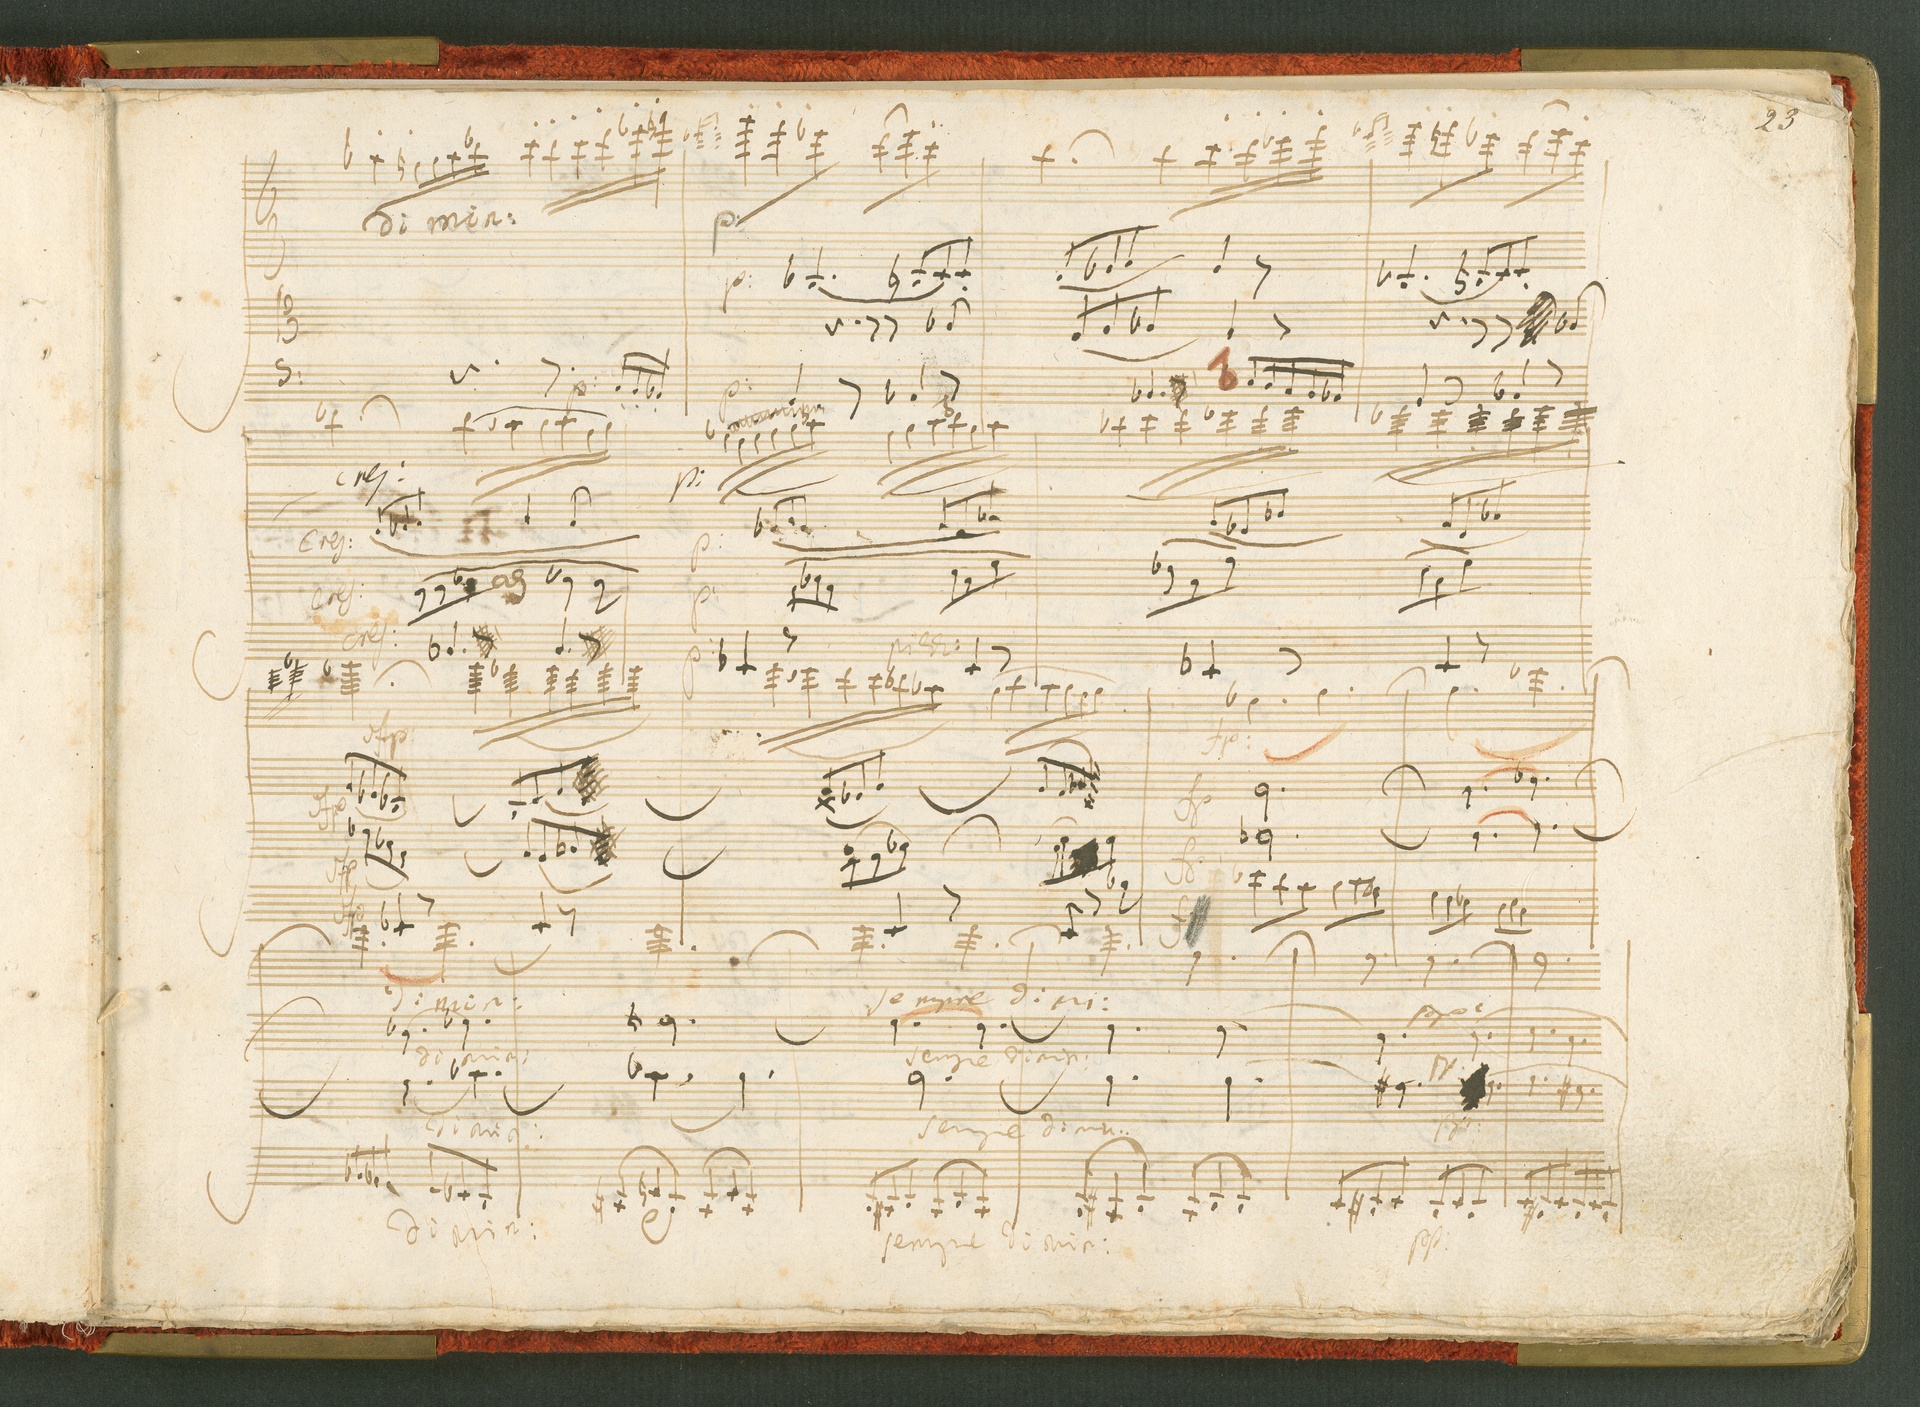 23
di min:
p:
p:
p:
p:
cres:
p:
cres:
p:
cres:
p:
cres:
p
pizz:
sfp
fp:
sfp
fp
sfp
sfp
dimin:
sempre dimi:
pp:
dimin:
sempre dimin:
pp:
dimin:
sempre dimin:
pp:
dimin:
sempre dimin:
pp: